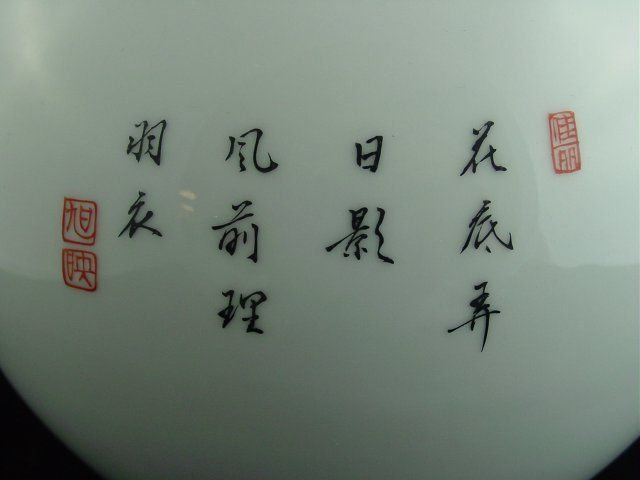 佳丽
花底弄
日影
风前理
羽衣
旭
映